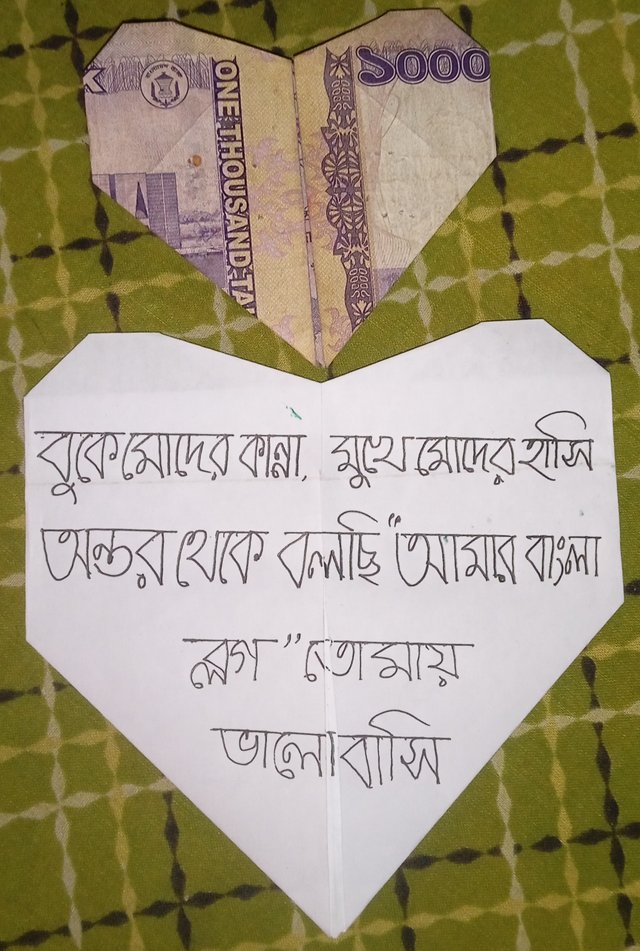 ১০০০
ONE THOUSAND TA
বুকে মোদের কান্না, মুখে মোদের হাসি
অন্তর থেকে বলছি "আমার বাংলা
ব্লগ" তোমায়
ভালোবাসি